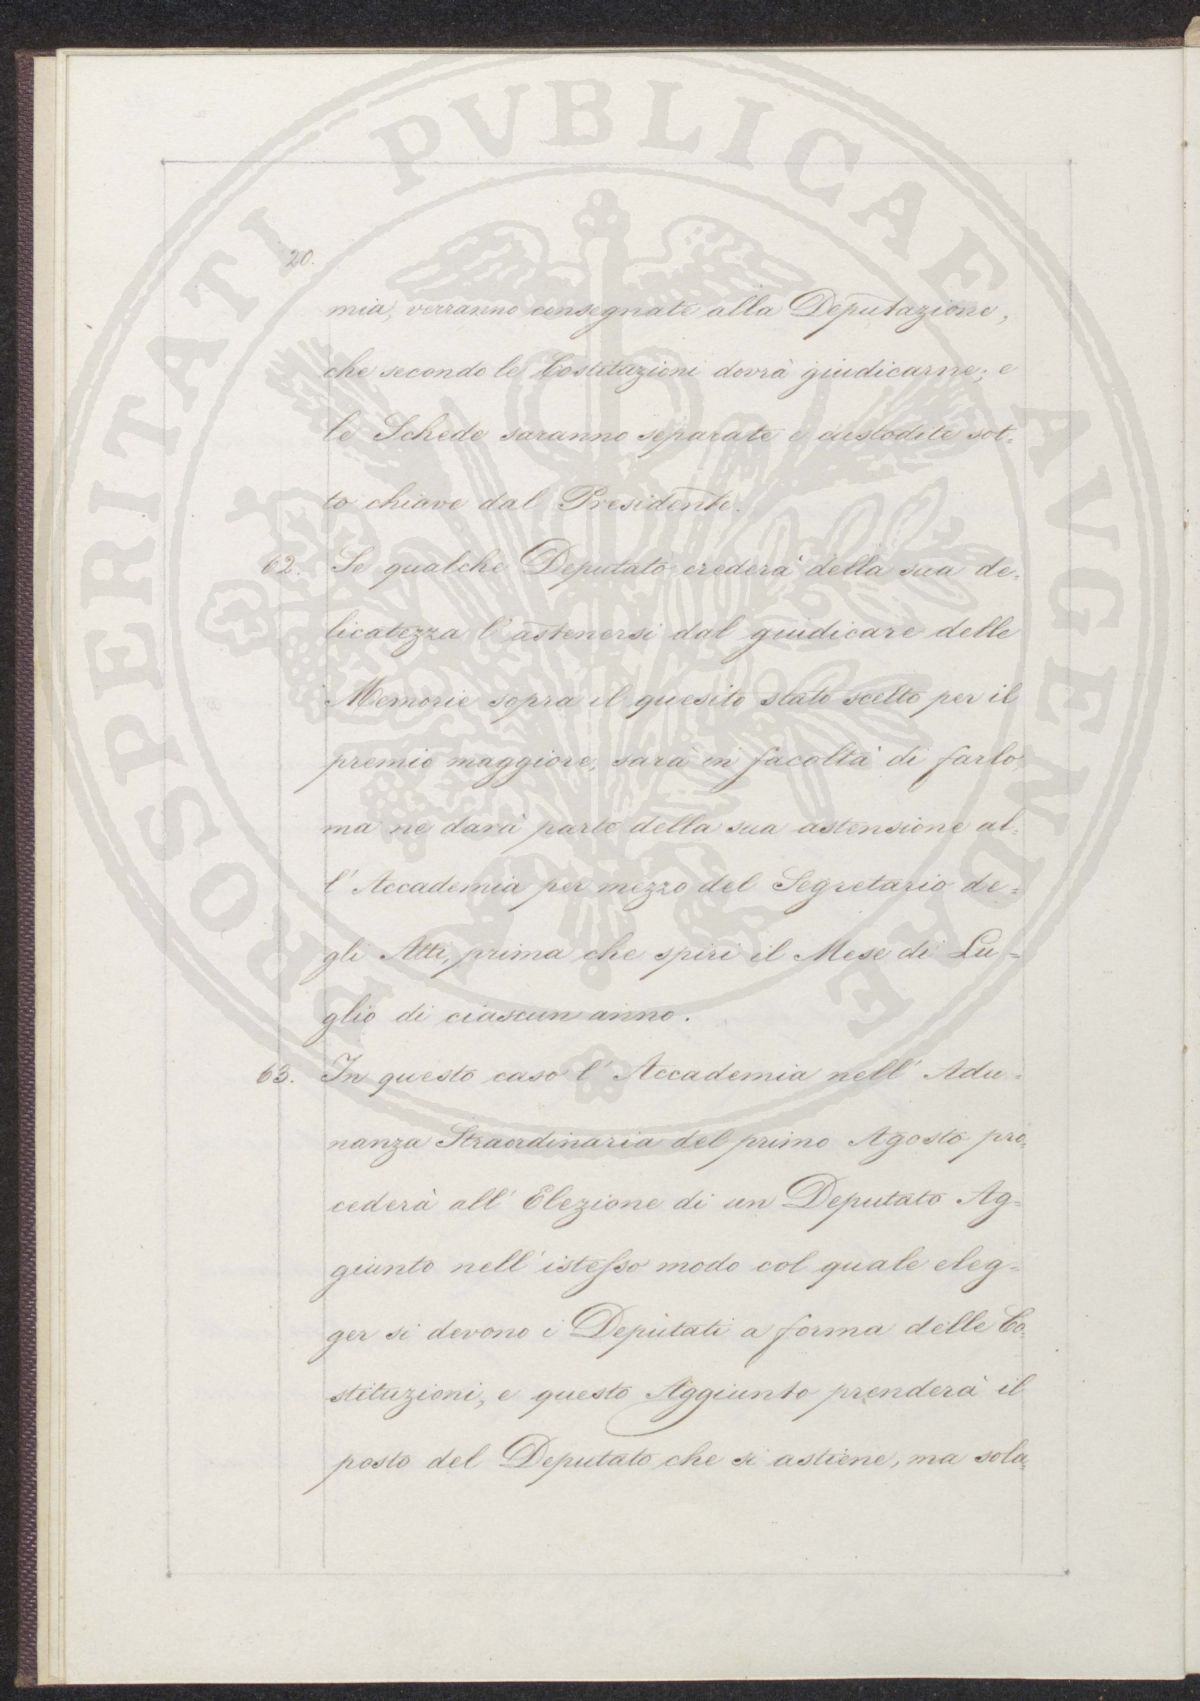 PROSPERITATI PVBLICAE AVGENDAE
20.
mia, verranno consegnate alla Deputazione,
che secondo le Costituzioni dovrà giudicarne; e
le Schede saranno separate e custodite sot=
to chiave dal Presidente.
62. Se qualche Deputato crederà della sua de=
licatezza l'astenersi dal giudicare delle
Memorie sopra il quesito stato scelto per il
premio maggiore, sarà in facoltà di farlo,
ma ne darà parte della sua astensione al=
l'Accademia per mezzo del Segretario de=
gli Atti, prima che spiri il Mese di Lu=
glio di ciascun anno.
63. In questo caso l'Accademia nell'Adu=
nanza Straordinaria del primo Agosto pro=
cederà all'Elezione di un Deputato Ag=
giunto nell'istesso modo col quale eleg=
ger si devono i Deputati a forma delle Co=
stituzioni, e questo Aggiunto prenderà il
posto del Deputato che si astiene, ma sola=